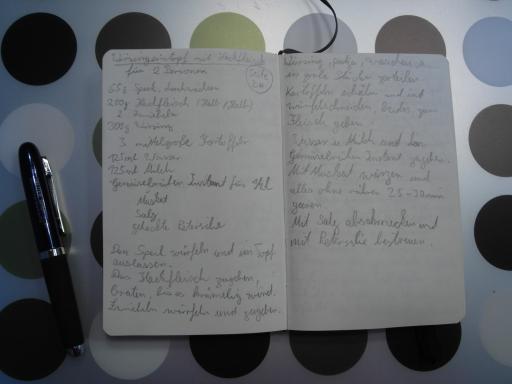 Wirsingeintopf mit Hackfleisch
für 2 Personen
Seite
65g Speck, durchwachsen
200g Hackfleisch (Halb/Halb)
2 Zwiebeln
300g Wirsing
3 mittelgroße Kartoffeln
125ml Wasser
125ml Milch
Gemüsebrühe Instant für
Muskat
Salz
gehackte Petersilie
Den Speck würfeln und im Topf
auslassen.
Das Hackfleisch zugeben,
braten, bis es krümelig wird.
Zwiebeln würfeln und zugeben.
Wirsing putzen, waschen und
in grobe Stücke zerteilen
Kartoffeln schälen und in
würfel schneiden, beides zum
Fleisch geben.
Wasser u. Milch und den
Gemüsebrühe Instant zugeben.
Mit Muskat würzen und
alles ohne rühren 25-30min
garen
Mit Salz abschmecken und
mit Petersilie bestreuen.